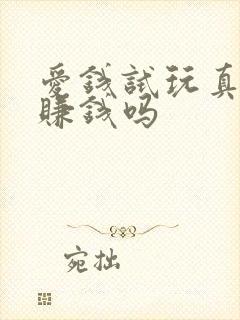 爱钱試玩真
賺钱吗
宛拙